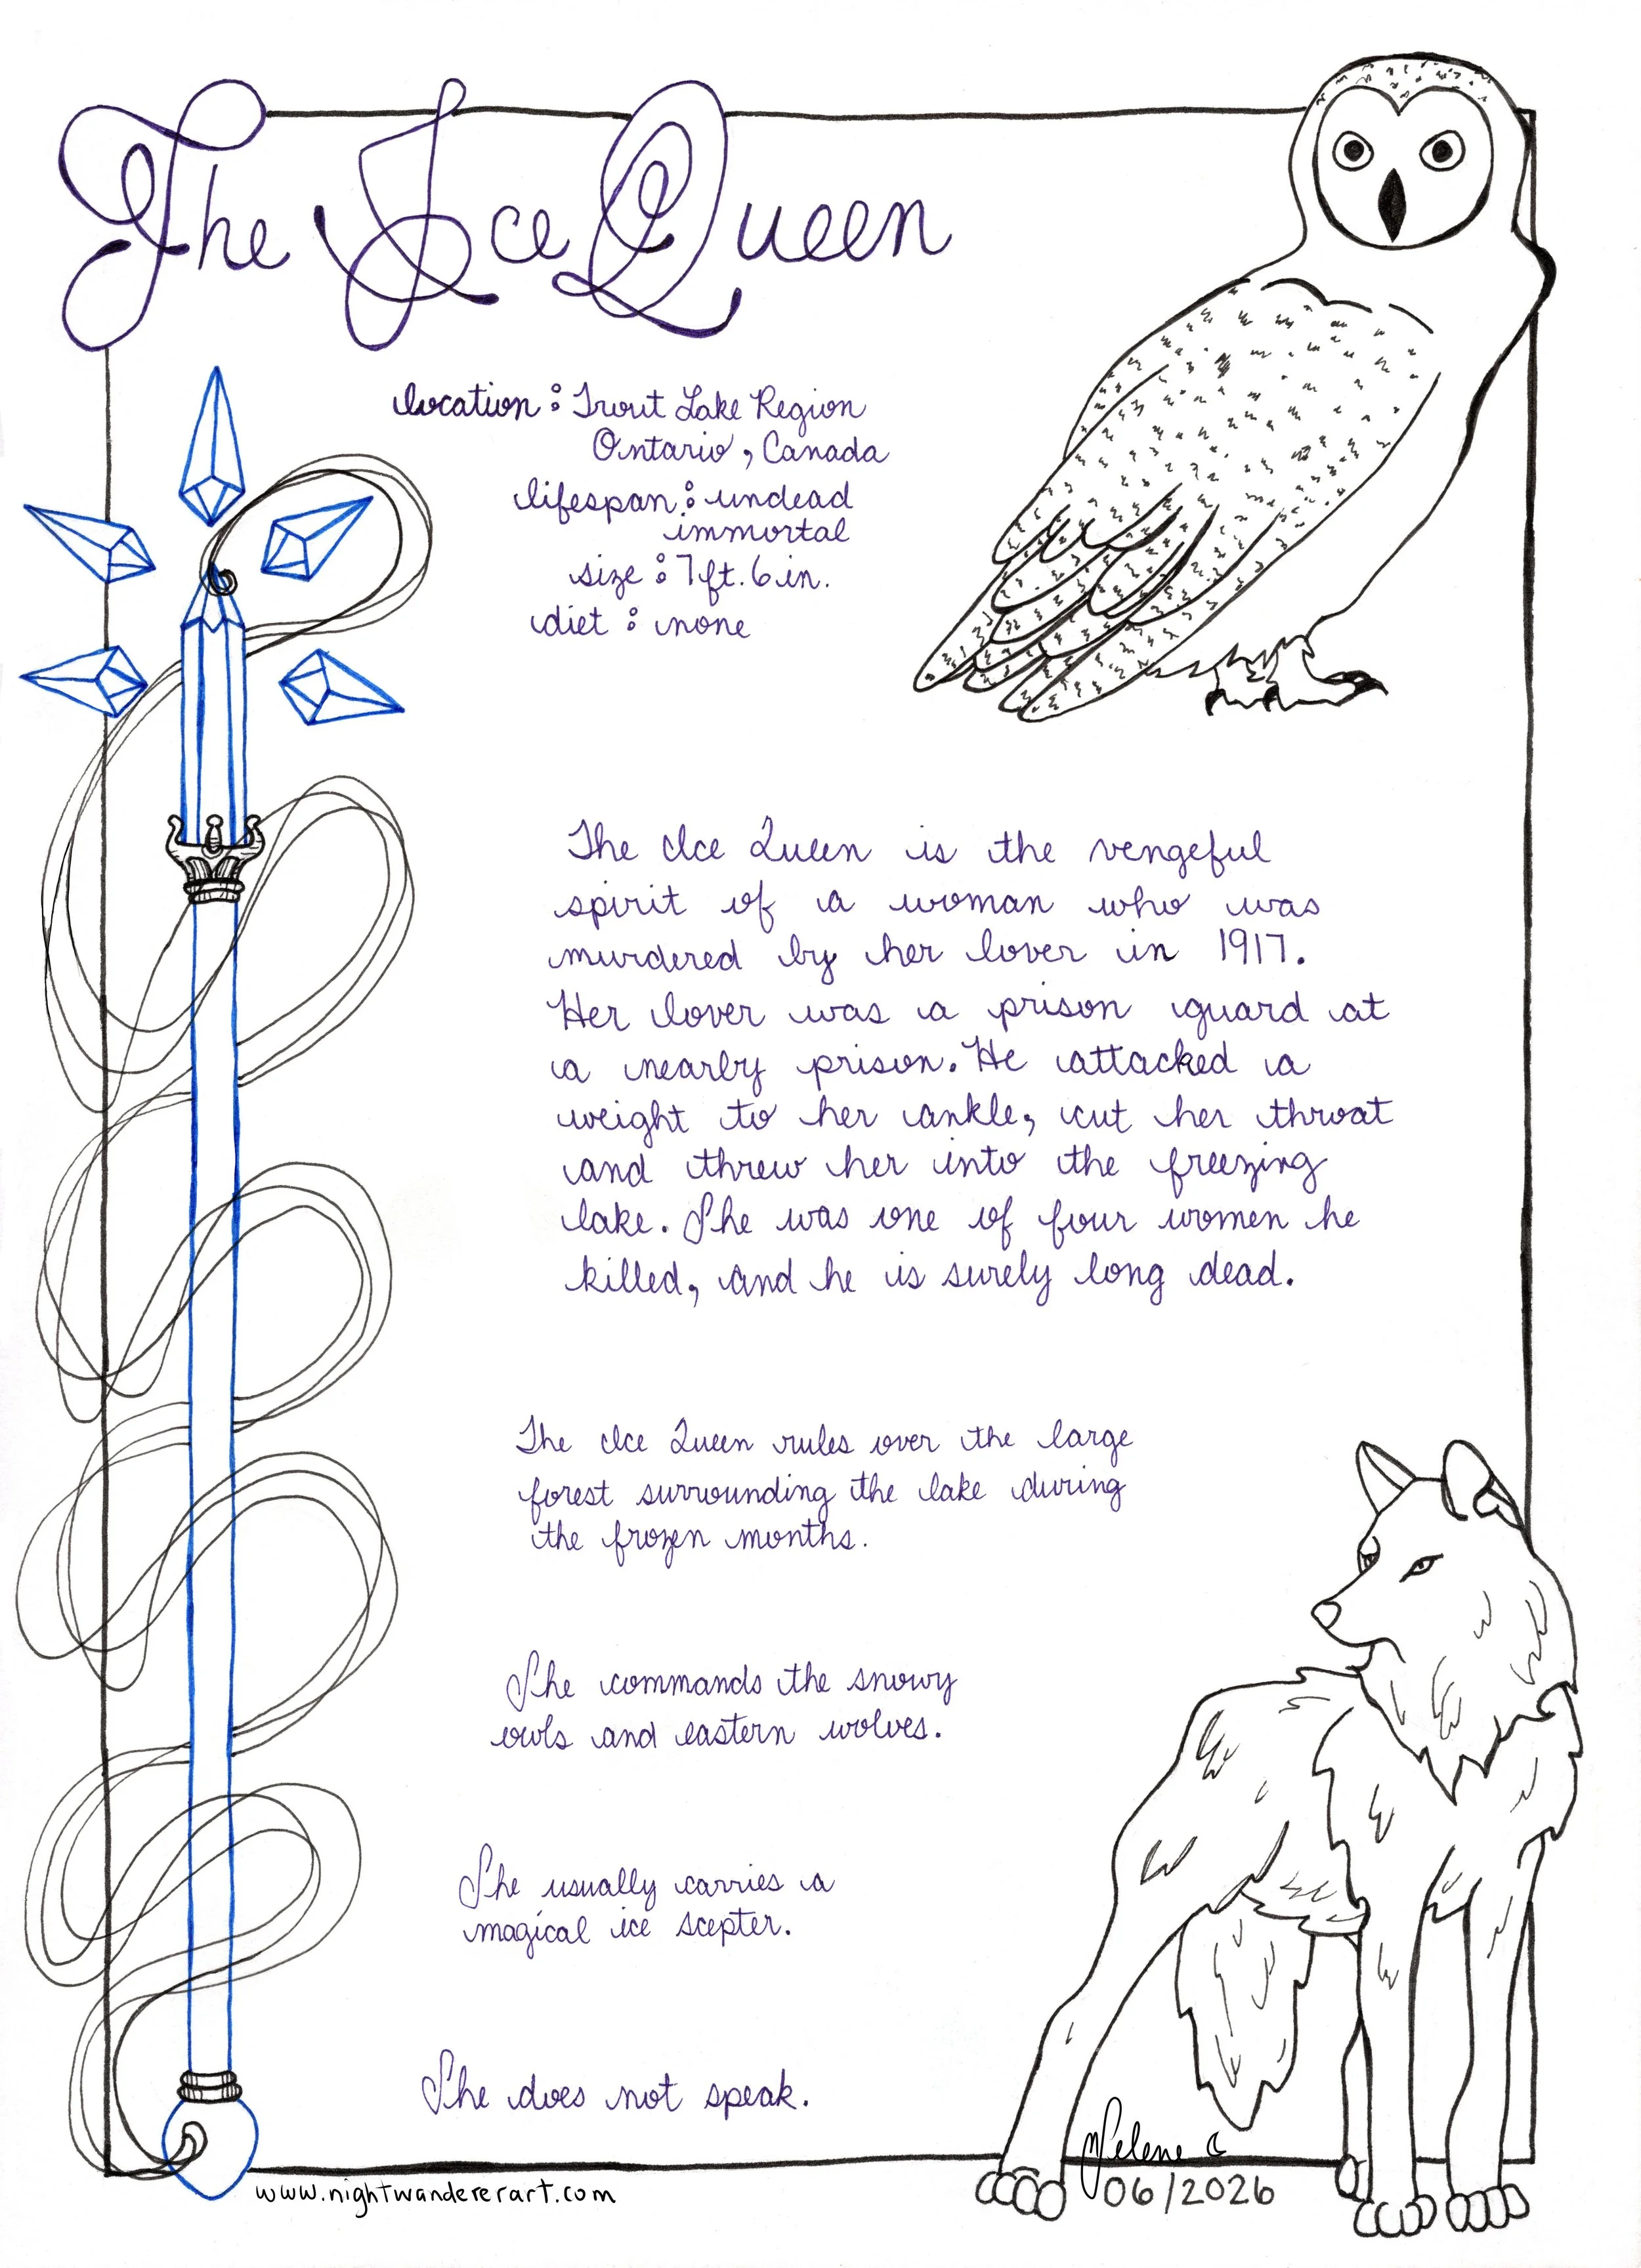 The Ice Queen
location : Trout Lake Region
Ontario, Canada
lifespan : undead
immortal
size : 7ft. 6in.
diet : none
The Ice Queen is the vengeful
spirit of a woman who was
murdered by her lover in 1917.
Her lover was a prison guard at
a nearby prison. He attacked a
weight to her ankle, cut her throat
and threw her into the freezing
lake. She was one of four women he
killed, and he is surely long dead.
The Ice Queen rules over the large
forest surrounding the lake during
the frozen months.
She commands the snowy
owls and eastern wolves.
She usually carries a
magical ice scepter.
She does not speak.
Selene
06/2026
www.nightwandererart.com